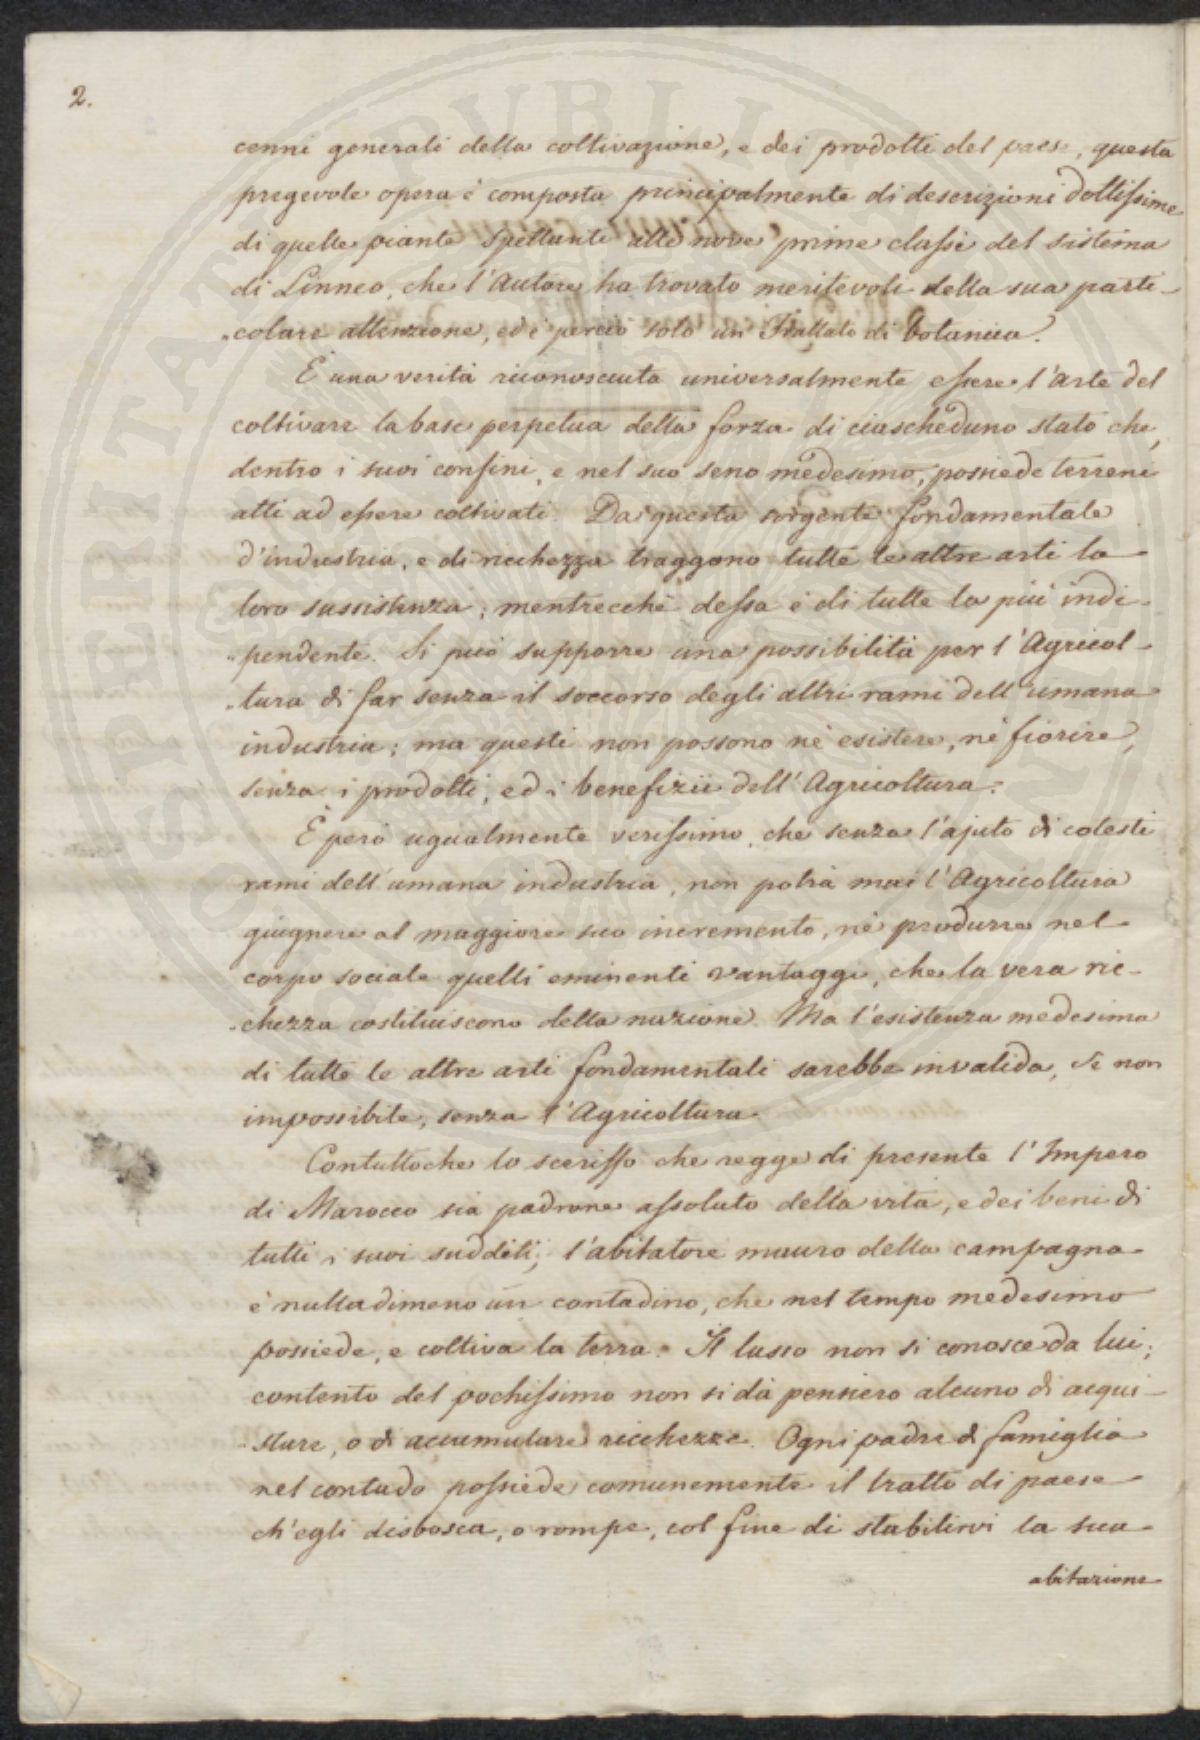 2.
cenni generali della coltivazione, e dei prodotti del paese, questa
pregevole opera è composta principalmente di descrizioni dottissime
di quelle piante spettanti alle nove prime classi del sistema
di Linneo, che l'Autore ha trovato meritevoli della sua parti-
-colare attenzione, ed è perciò solo un Trattato di botanica.
È una verità riconosciuta universalmente essere l'arte del
coltivare la base perpetua della forza di ciascheduno stato che,
dentro i suoi confini, e nel suo seno medesimo, possiede terreni
atti ad essere coltivati. Da questa sorgente fondamentale
d'industria, e di ricchezza traggono tutte le altre arti la
loro sussistenza; mentrecchè dessa è di tutte la più indi-
-pendente. Si può supporre una possibilità per l'Agricol-
-tura di far senza il soccorso degli altri rami dell'umana
industria; ma questi non possono nè esistere, nè fiorire,
senza i prodotti, ed i benefizii dell'Agricoltura.
È però ugualmente verissimo, che senza l'ajuto di cotesti
rami dell'umana industria, non potrà mai l'Agricoltura
giugnere al maggiore suo incremento, nè produrre nel
corpo sociale quelli eminenti vantaggi, che la vera ric-
-chezza costituiscono della nazione. Ma l'esistenza medesima
di tutte le altre arti fondamentali sarebbe invalida, se non
impossibile, senza l'Agricoltura.
Contuttoche lo sceriffo che regge di presente l'Impero
di Marocco sia padrone assoluto della vita, e dei beni di
tutti i suoi sudditi; l'abitatore mauro della campagna
è nulladimeno un contadino, che nel tempo medesimo
possiede, e coltiva la terra. Il lusso non si conosce da lui;
contento del pochissimo non si dà pensiero alcuno di acqui-
-stare, o di accumulare ricchezze. Ogni padre di famiglia
nel contado possiede comunemente il tratto di paese
ch'egli disbosca, o rompe, col fine di stabilirvi la sua
abitazione
PROSPERITATI PVBLICAE